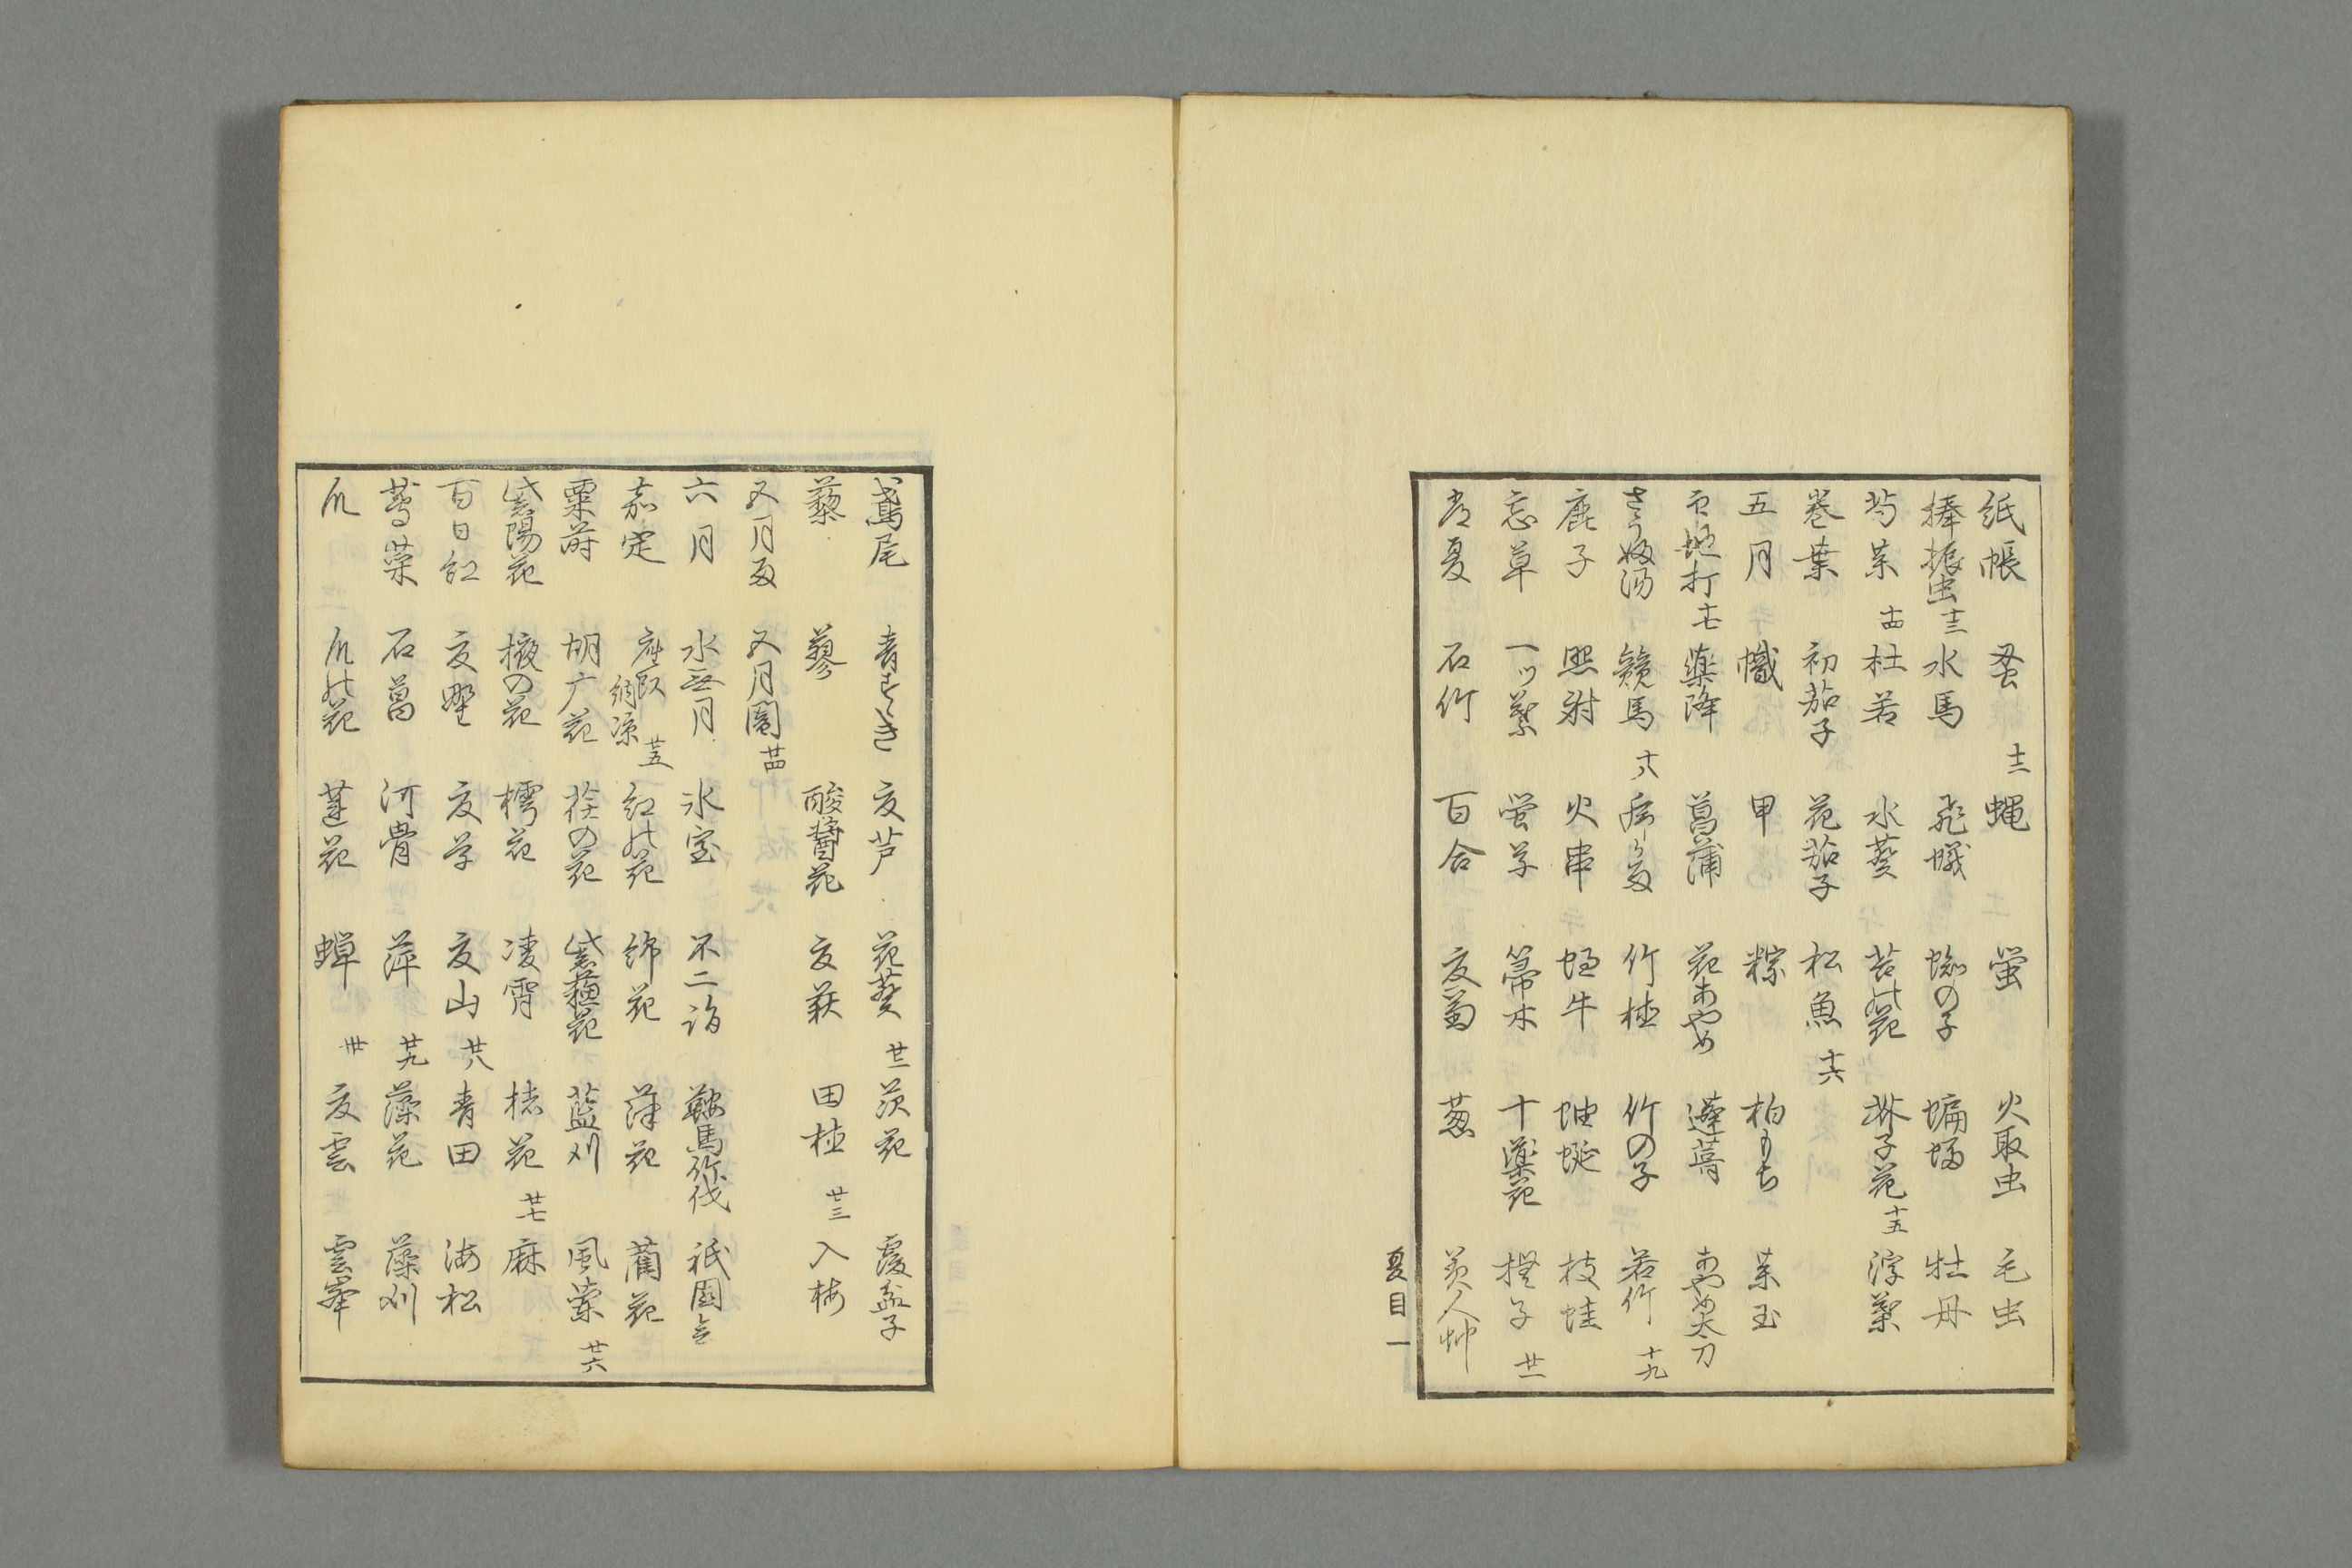 紙帳 蚤 十二 蝿 蛍 火取虫 毛虫
棒振虫 十三 水馬 飛蟻 蜘の子 蝙蝠 牡丹
芍薬 十四 杜若 水葵 苔の花 罌子花 十五 浮葉
巻葉 初茄子 花茄子 松魚 十六
五月 幟 甲 粽 柏もち 薬玉
印地打 十七 薬降 菖蒲 花あやめ 蓬葺 あやめ太刀
さうぶ湯 競馬 十八 虎が雨 竹植 竹の子 若竹 十九
鹿子 照射 火串 蝸牛 蚰蜒 枝蛙
忘草 一ッ葉 蛍草 箒木 十薬花
常夏 石竹 百合 夏菊 葱 美人艸
夏目 一
鳶尾 青すゝき 夏芦 花葵 廿二 茨花 覆盆子
藜 蓼 酸醬花 夏萩 田植 廿三 入梅
五月雨 五月闇 廿四
六月 水無月 氷室 不二詣 鞍馬竹伐 祇園会
嘉定 納涼 廿五 紅の花 綿花 蒲花 藺花
粟蒔 胡麻花 紫蘇花 藍刈 風蘭 廿六
紫陽花 樗花 凌霄 廿七 麻
百日紅 夏野 夏草 夏山 廿八 青田 海松
蓴菜 石菖 河骨 萍 廿九 藻花 藻刈
瓜 瓜の花 蓮花 蝉 卅 夏雲 雲峯